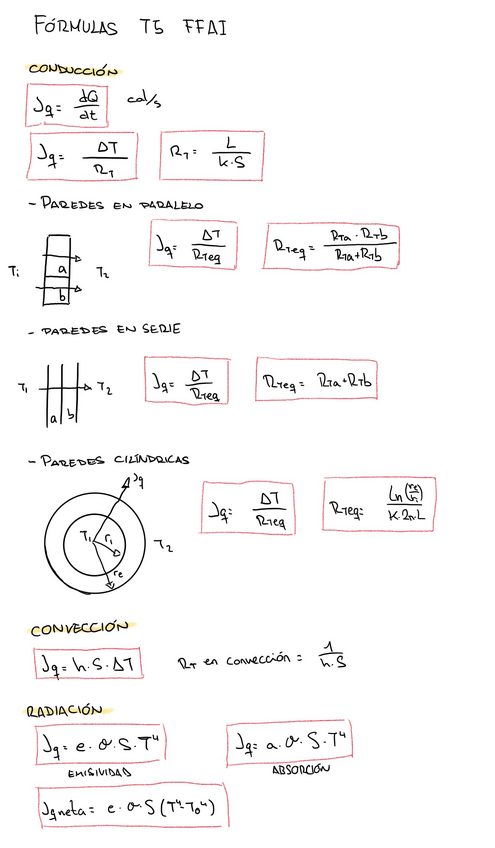 FÓRMULAS T5 FFAI
CONDUCCIÓN
Jq = dQ/dt cal/s
Jq = ΔT/RT RT = L/k·S
- PAREDES EN PARALELO
Jq = ΔT/RTeq RTeq = RTa · RTb/RTa+RTb
T1 a T2
b
- PAREDES EN SERIE
T1 T2 Jq = ΔT/RTeq RTeq = RTa+RTb
a b
- PAREDES CILÍNDRICAS
Jq
Jq = ΔT/RTeq RTeq = Ln(re/ri)/K·2π·L
T1 ri T2
re
CONVECCIÓN
Jq = h·S·ΔT RT en convección = 1/h·S
RADIACIÓN
Jq = e·σ·S·T⁴ Jq = a·σ·S·T⁴
EMISIVIDAD ABSORCIÓN
Jqneta = e·σ·S(T⁴-T0⁴)